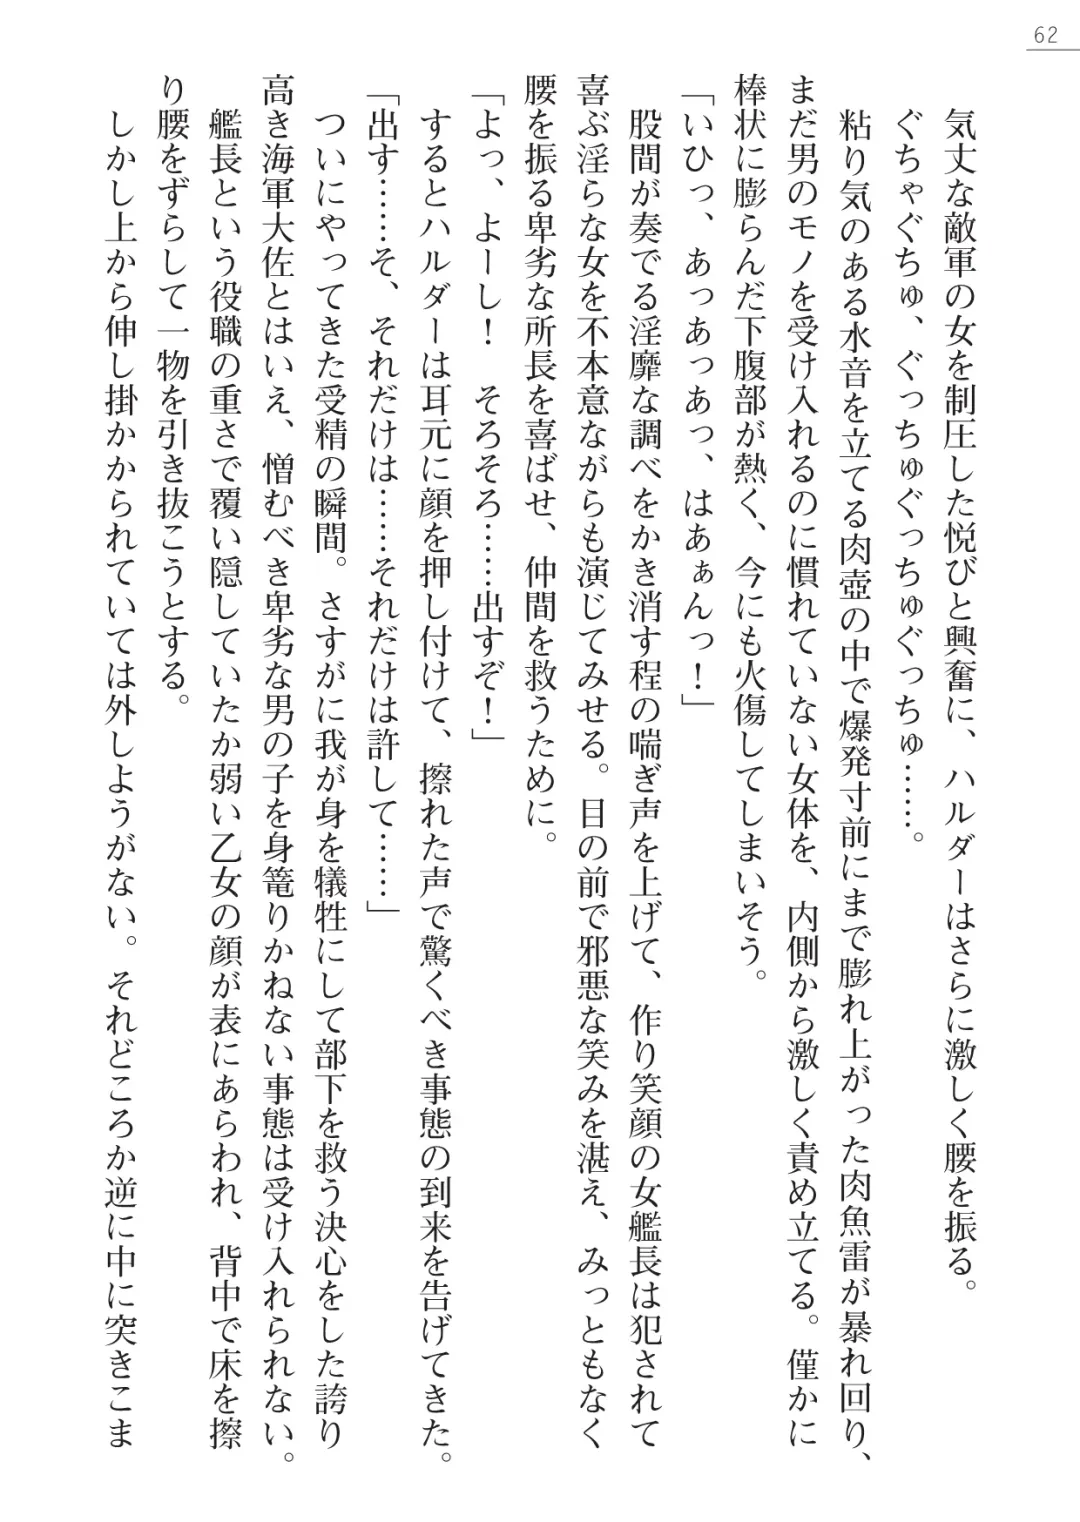 62
気丈な敵軍の女を制圧した悦びと興奮に、ハルダーはさらに激しく腰を振る。
ぐちゃぐちゅ、ぐっちゅぐっちゅぐっちゅ……。
粘り気のある水音を立てる肉壺の中で爆発寸前にまで膨れ上がった肉魚雷が暴れ回り、
まだ男のモノを受け入れるのに慣れていない女体を、内側から激しく責め立てる。僅かに
棒状に膨らんだ下腹部が熱く、今にも火傷してしまいそう。
「いひっ、あっあっあっ、はあぁんっ！」
股間が奏でる淫靡な調べをかき消す程の喘ぎ声を上げて、作り笑顔の女艦長は犯されて
喜ぶ淫らな女を不本意ながらも演じてみせる。目の前で邪悪な笑みを湛え、みっともなく
腰を振る卑劣な所長を喜ばせ、仲間を救うために。
「よっ、よーし！　そろそろ……出すぞ！」
するとハルダーは耳元に顔を押し付けて、擦れた声で驚くべき事態の到来を告げてきた。
「出す……そ、それだけは……それだけは許して……」
ついにやってきた受精の瞬間。さすがに我が身を犠牲にして部下を救う決心をした誇り
高き海軍大佐とはいえ、憎むべき卑劣な男の子を身篭りかねない事態は受け入れられない。
艦長という役職の重さで覆い隠していたか弱い乙女の顔が表にあらわれ、背中で床を擦
り腰をずらして一物を引き抜こうとする。
しかし上から伸し掛かかられていては外しようがない。それどころか逆に中に突きこま